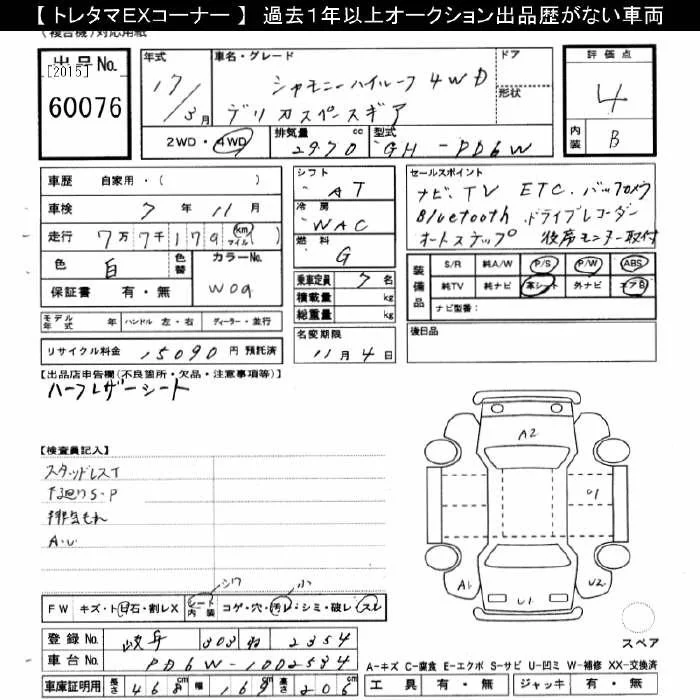 【 トレタマEXコーナー 】 過去1年以上オークション出品歴がない車両
(複合機)対応用紙
出品No.
[2015]
60076
年式
17/3月
車名・グレード
シャモニーハイルーフ 4WD
デリカスペースギア
ドア
形状
評価点
4
内装
B
2WD・4WD
排気量
2970 cc
型式
GH-PD6W
車歴 自家用・( )
車検 7年11月
走行 7万7千179 km マイル ( )
色 白 色替 カラーNo. W09
保証書 有・無
モデル年式 年 ハンドル 左・右 ディーラー・並行
リサイクル料金 15090 円 預託済
シフト
AT
冷房
WAC
燃料
G
乗車定員 7名
積載量 kg
総重量 kg
名変期限
11月4日
セールスポイント
ナビ、TV ETC.バックカメラ
Bluetooth ドライブレコーダー
オートステップ 後席モニター取付
装備品
S/R 純A/W P/S P/W ABS
純TV 純ナビ 革シート 外ナビ エアB
ナビ型番:
後日品
【出品店申告欄(不良箇所・欠品・注意事項等)】
ハーフレザーシート
【検査員記入】
スタッドレスT
下廻りS・P
排気もれ
A・U
シワ 小
FW キズ・ト 石・割レX シート内装 コゲ・穴・汚レ・シミ・破レ・スレ
登録No. 岐阜 303 2354
車台No. PD6W-1002534
車庫証明用 長さ 468 cm 幅 169 cm 高さ 206 cm
A2
A1
U2
U1
スペア
A-キズ C-腐食 E-エクボ S-サビ U-凹ミ W-補修 XX-交換済
工具 有・無 ジャッキ 有・無